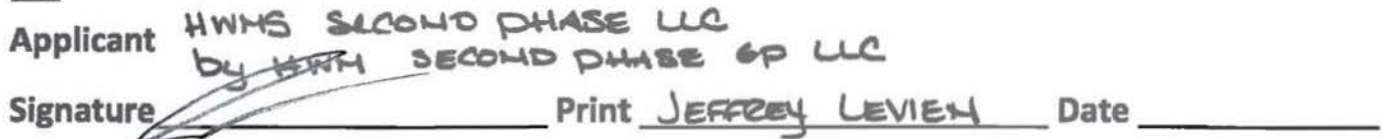 Applicant HWMS SECOND PHASE LLC
by HWM SECOND PHASE GP LLC
Signature Print JEFFREY LEVIEN Date